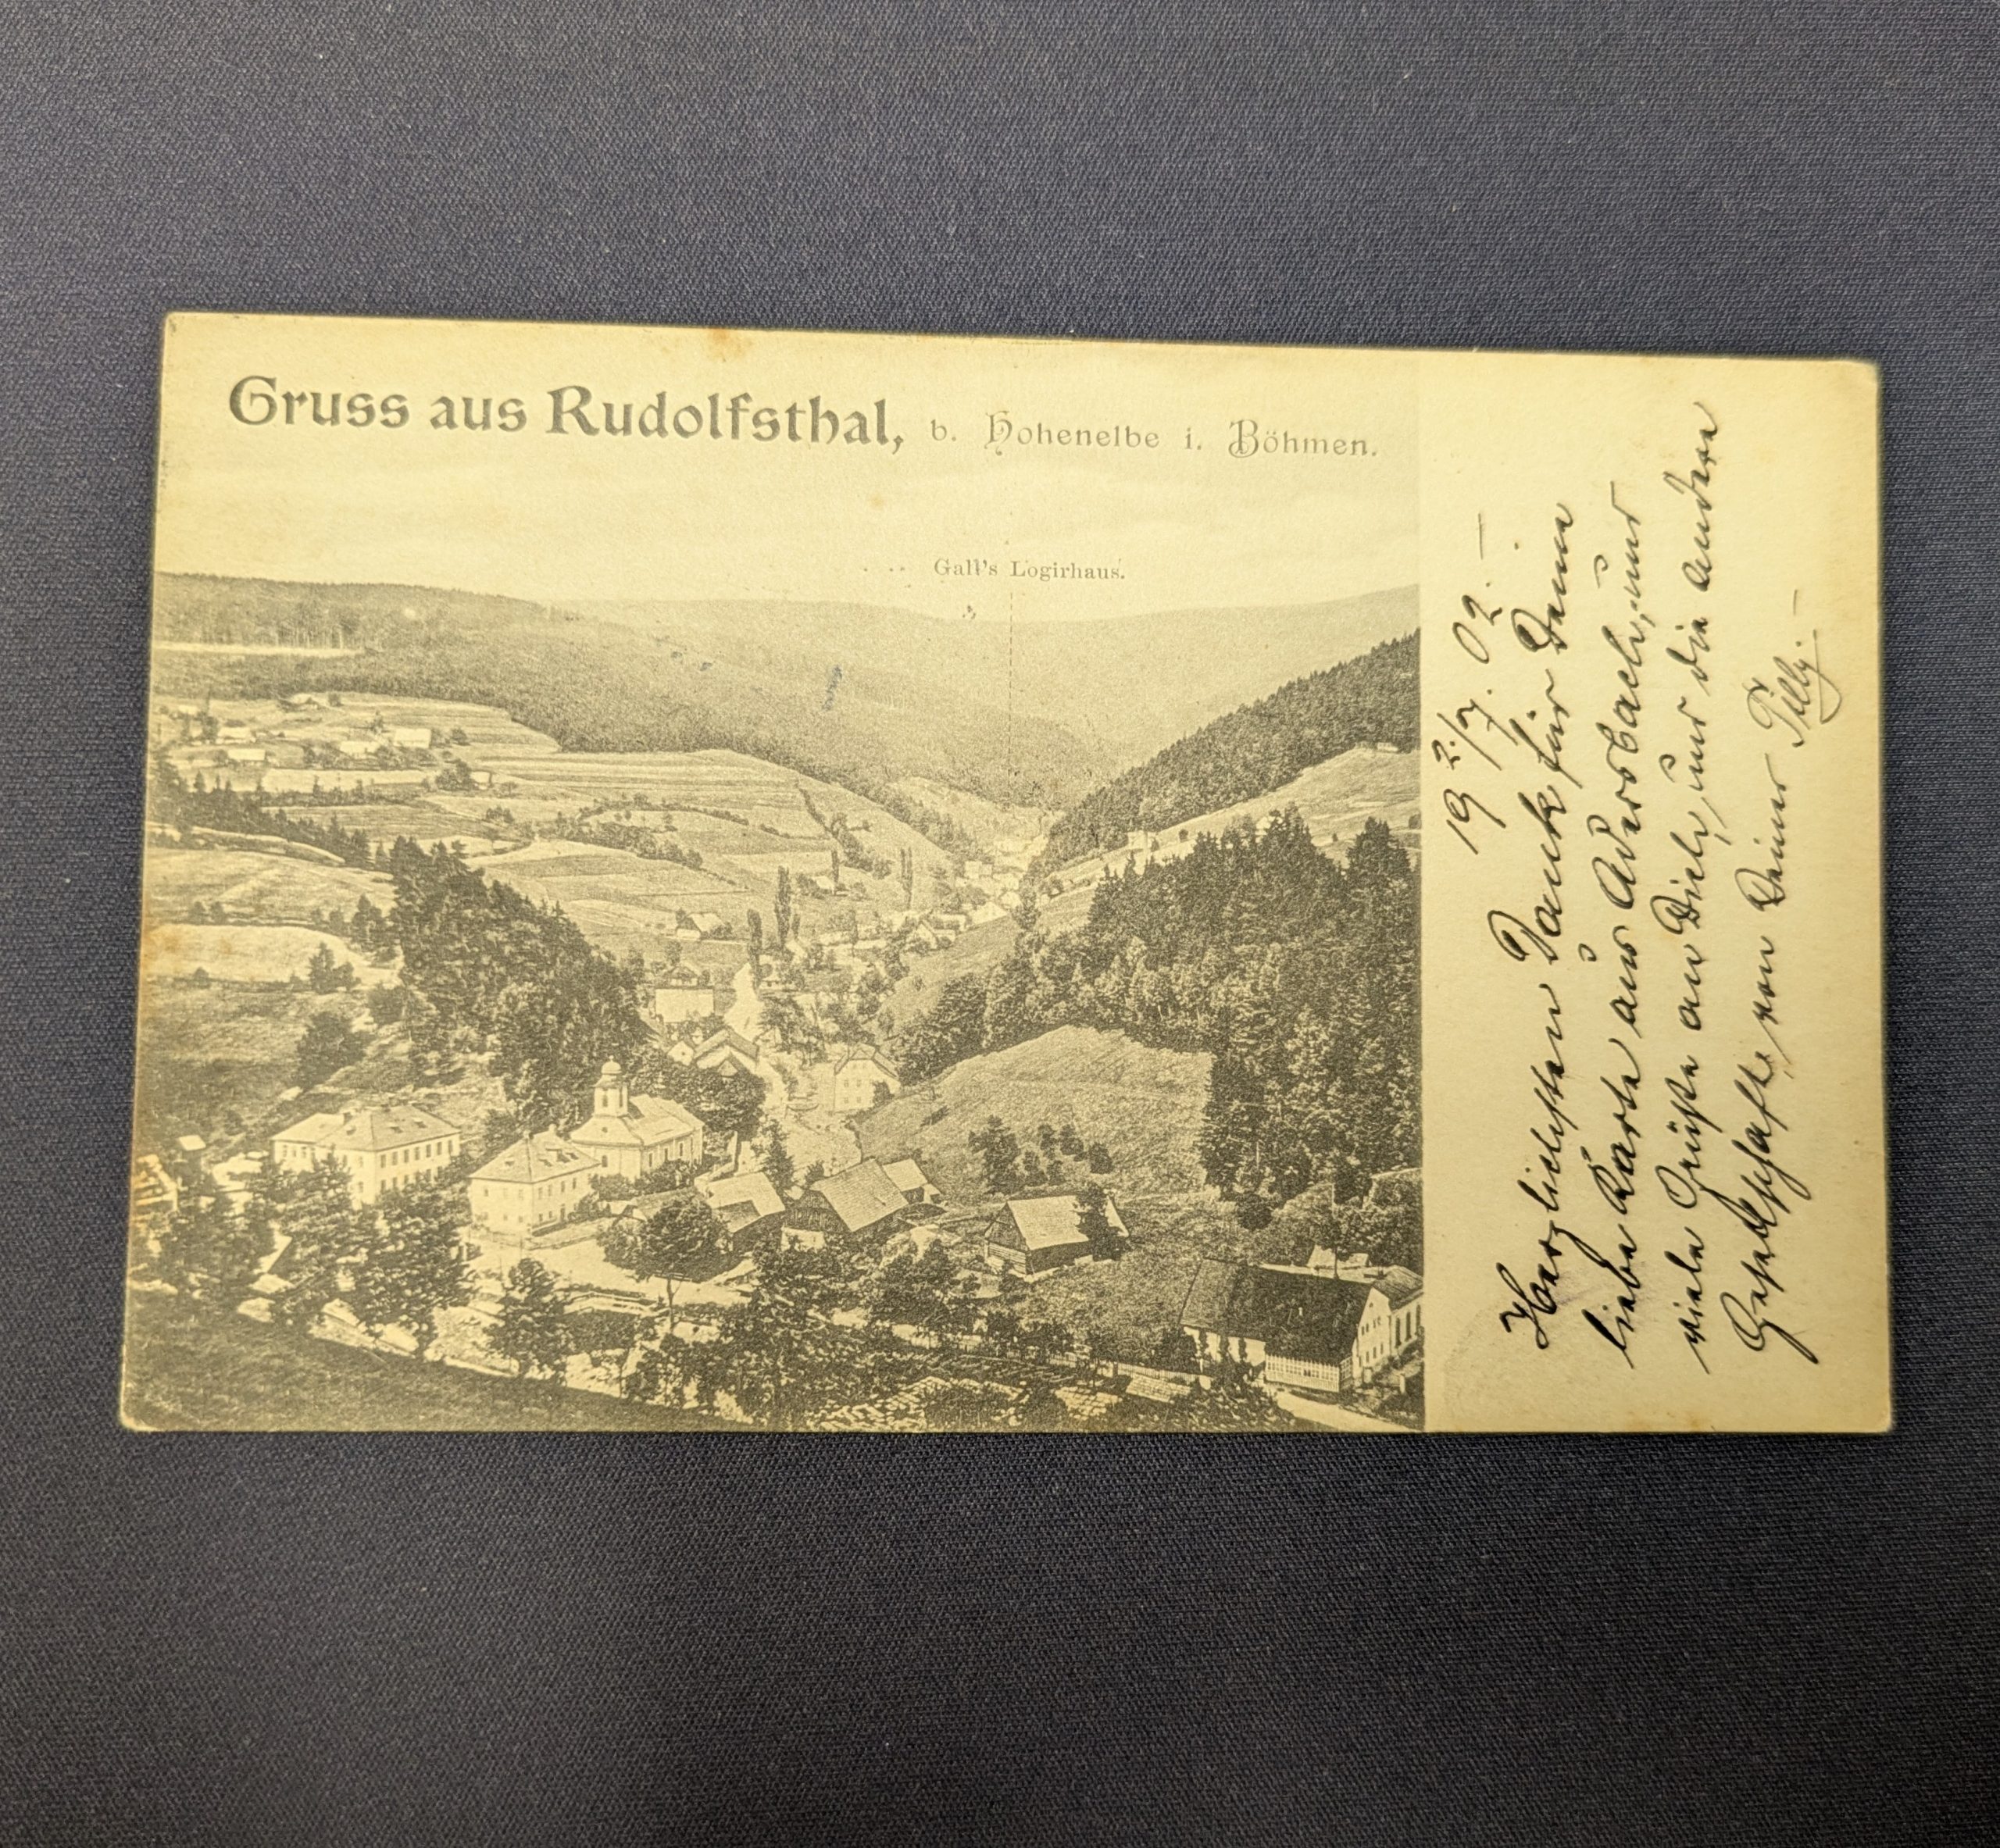 Gruss aus Rudolfsthal, b. Hohenelbe i. Böhmen.
Gall's Logirhaus.
19 2./7. 02. —
Herzlichsten Dank für Deine
liebe Karte aus Adersbach, und
viele Grüße an Dich, und die andere
Gesellschaft, von Deiner Tilly. —